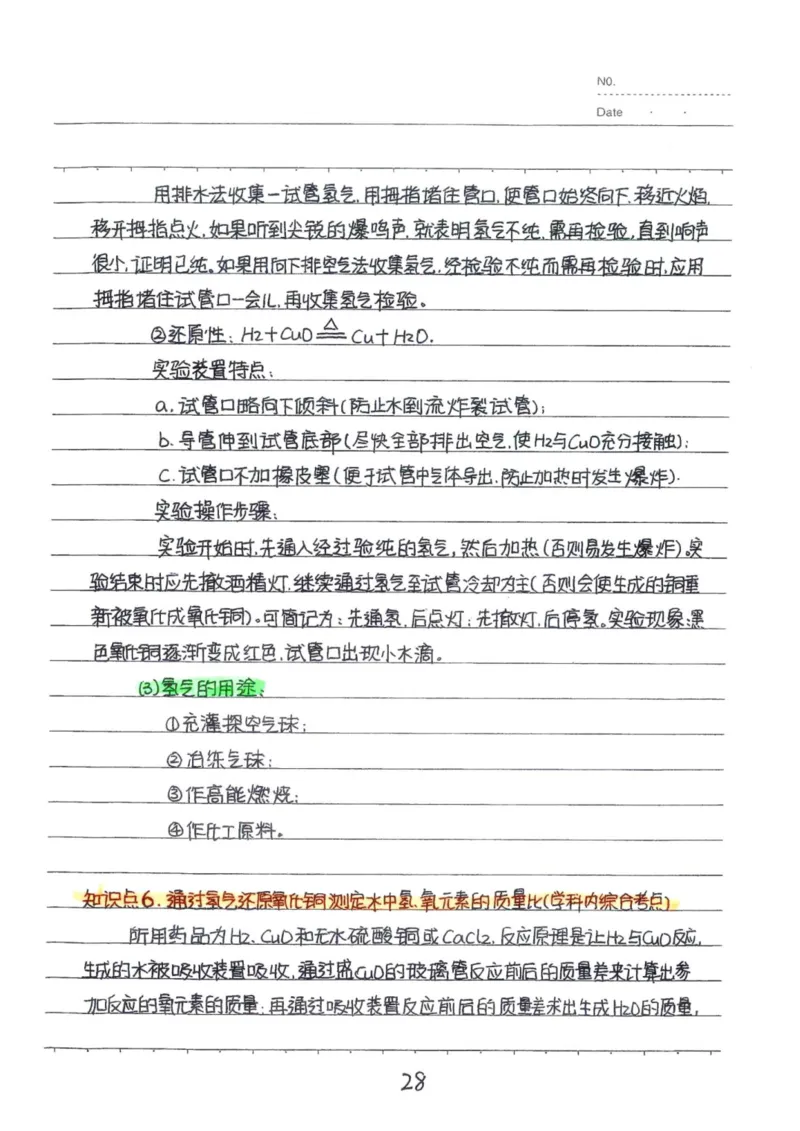 NO.
Date
用排水法收集一试管氢气,用拇指堵住管口,使管口始终向下,移近火焰,
移开拇指点火,如果听到尖锐的爆鸣声,就表明氢气不纯,需再检验,直到响声
很小,证明已纯。如果用向下排空气法收集氢气,经检验不纯而需再检验时,应用
拇指堵住试管口一会儿,再收集氢气检验。
②还原性: H2+CuO ≜ Cu+H2O.
实验装置特点:
a. 试管口略向下倾斜(防止水倒流炸裂试管);
b. 导管伸到试管底部(尽快全部排出空气,使H2与CuO充分接触);
C. 试管口不加橡皮塞(便于试管中气体导出,防止加热时发生爆炸).
实验操作步骤:
实验开始时,先通入经过验纯的氢气,然后加热(否则易发生爆炸)。实
验结束时应先撤洒精灯,继续通过氢气至试管冷却为主(否则会使生成的铜重
新被氧化成氧化铜)。可简记为:先通氢,后点灯;先撤灯,后停氢。实验现象:黑
色氧化铜逐渐变成红色,试管口出现小水滴。
(3)氢气的用途:
①充灌探空气球;
②冶练气球;
③作高能燃烧;
④作化工原料。
知识点6. 通过氢气还原氧化铜测定水中氢、氧元素的质量比(学科内综合考点)
所用药品为H2、CuO和无水硫酸铜或CaCl2,反应原理是让H2与CuO反应,
生成的水被吸收装置吸收,通过盛CuO的玻璃管反应前后的质量差来计算出参
加反应的氧元素的质量;再通过吸收装置反应前后的质量差求出生成H2O的质量,
28